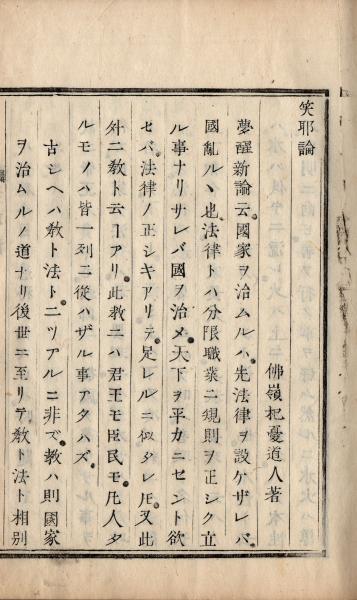 笑耶論
佛嶺杞憂道人著
夢醒新論云國家ヲ治ムルハ先法律ヲ設ケザレバ
國亂ルヽ也法律トハ分限職業ニ規則ヲ正シク立
ル事ナリサレバ國ヲ治メ天下ヲ平カニセント欲
セバ法律ノ正シキアリテ足レルニ似タレ𪜈又此
外ニ教ト云ヿアリ此教ニハ君王モ臣民モ凡人タ
ルモノハ皆一列ニ從ハザル事アタハズ
古シヘハ教ト法トニツアルニ非ズ教ハ則國家
ヲ治ムルノ道ナリ後世ニ至リテ教ト法ト相別